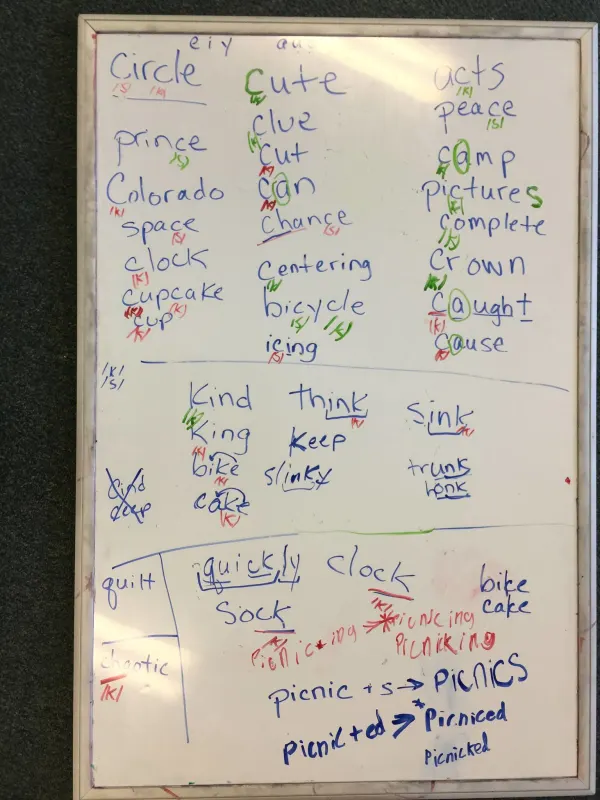 e i y    a u
circle
/s/ /k/
prince
/s/
Colorado
/k/
space
/s/
clock
/k/
cupcake
/k/ /k/
cup
/k/
cute
/k/
clue
/k/
cut
/k/
can
/k/
chance
/s/
centering
/s/
bicycle
/s/ /k/
icing
/s/
acts
/k/
peace
/s/
camp
/k/
pictures
/k/
complete
/k/
crown
/k/
caught
/k/
cause
/k/
/k/
/s/
cind
ceep
kind
/k/
king
/k/
bike
cake
/k/
think
/k/
keep
slinky
sink
/k/
trunk
honk
quilt
chaotic
/k/
quickly
clock
/k/
sock
/k/
bike
cake
picnic + ing → *Picnicing
Picnicking
picnic + s → PICNICS
picnic + ed → *Picniced
Picnicked